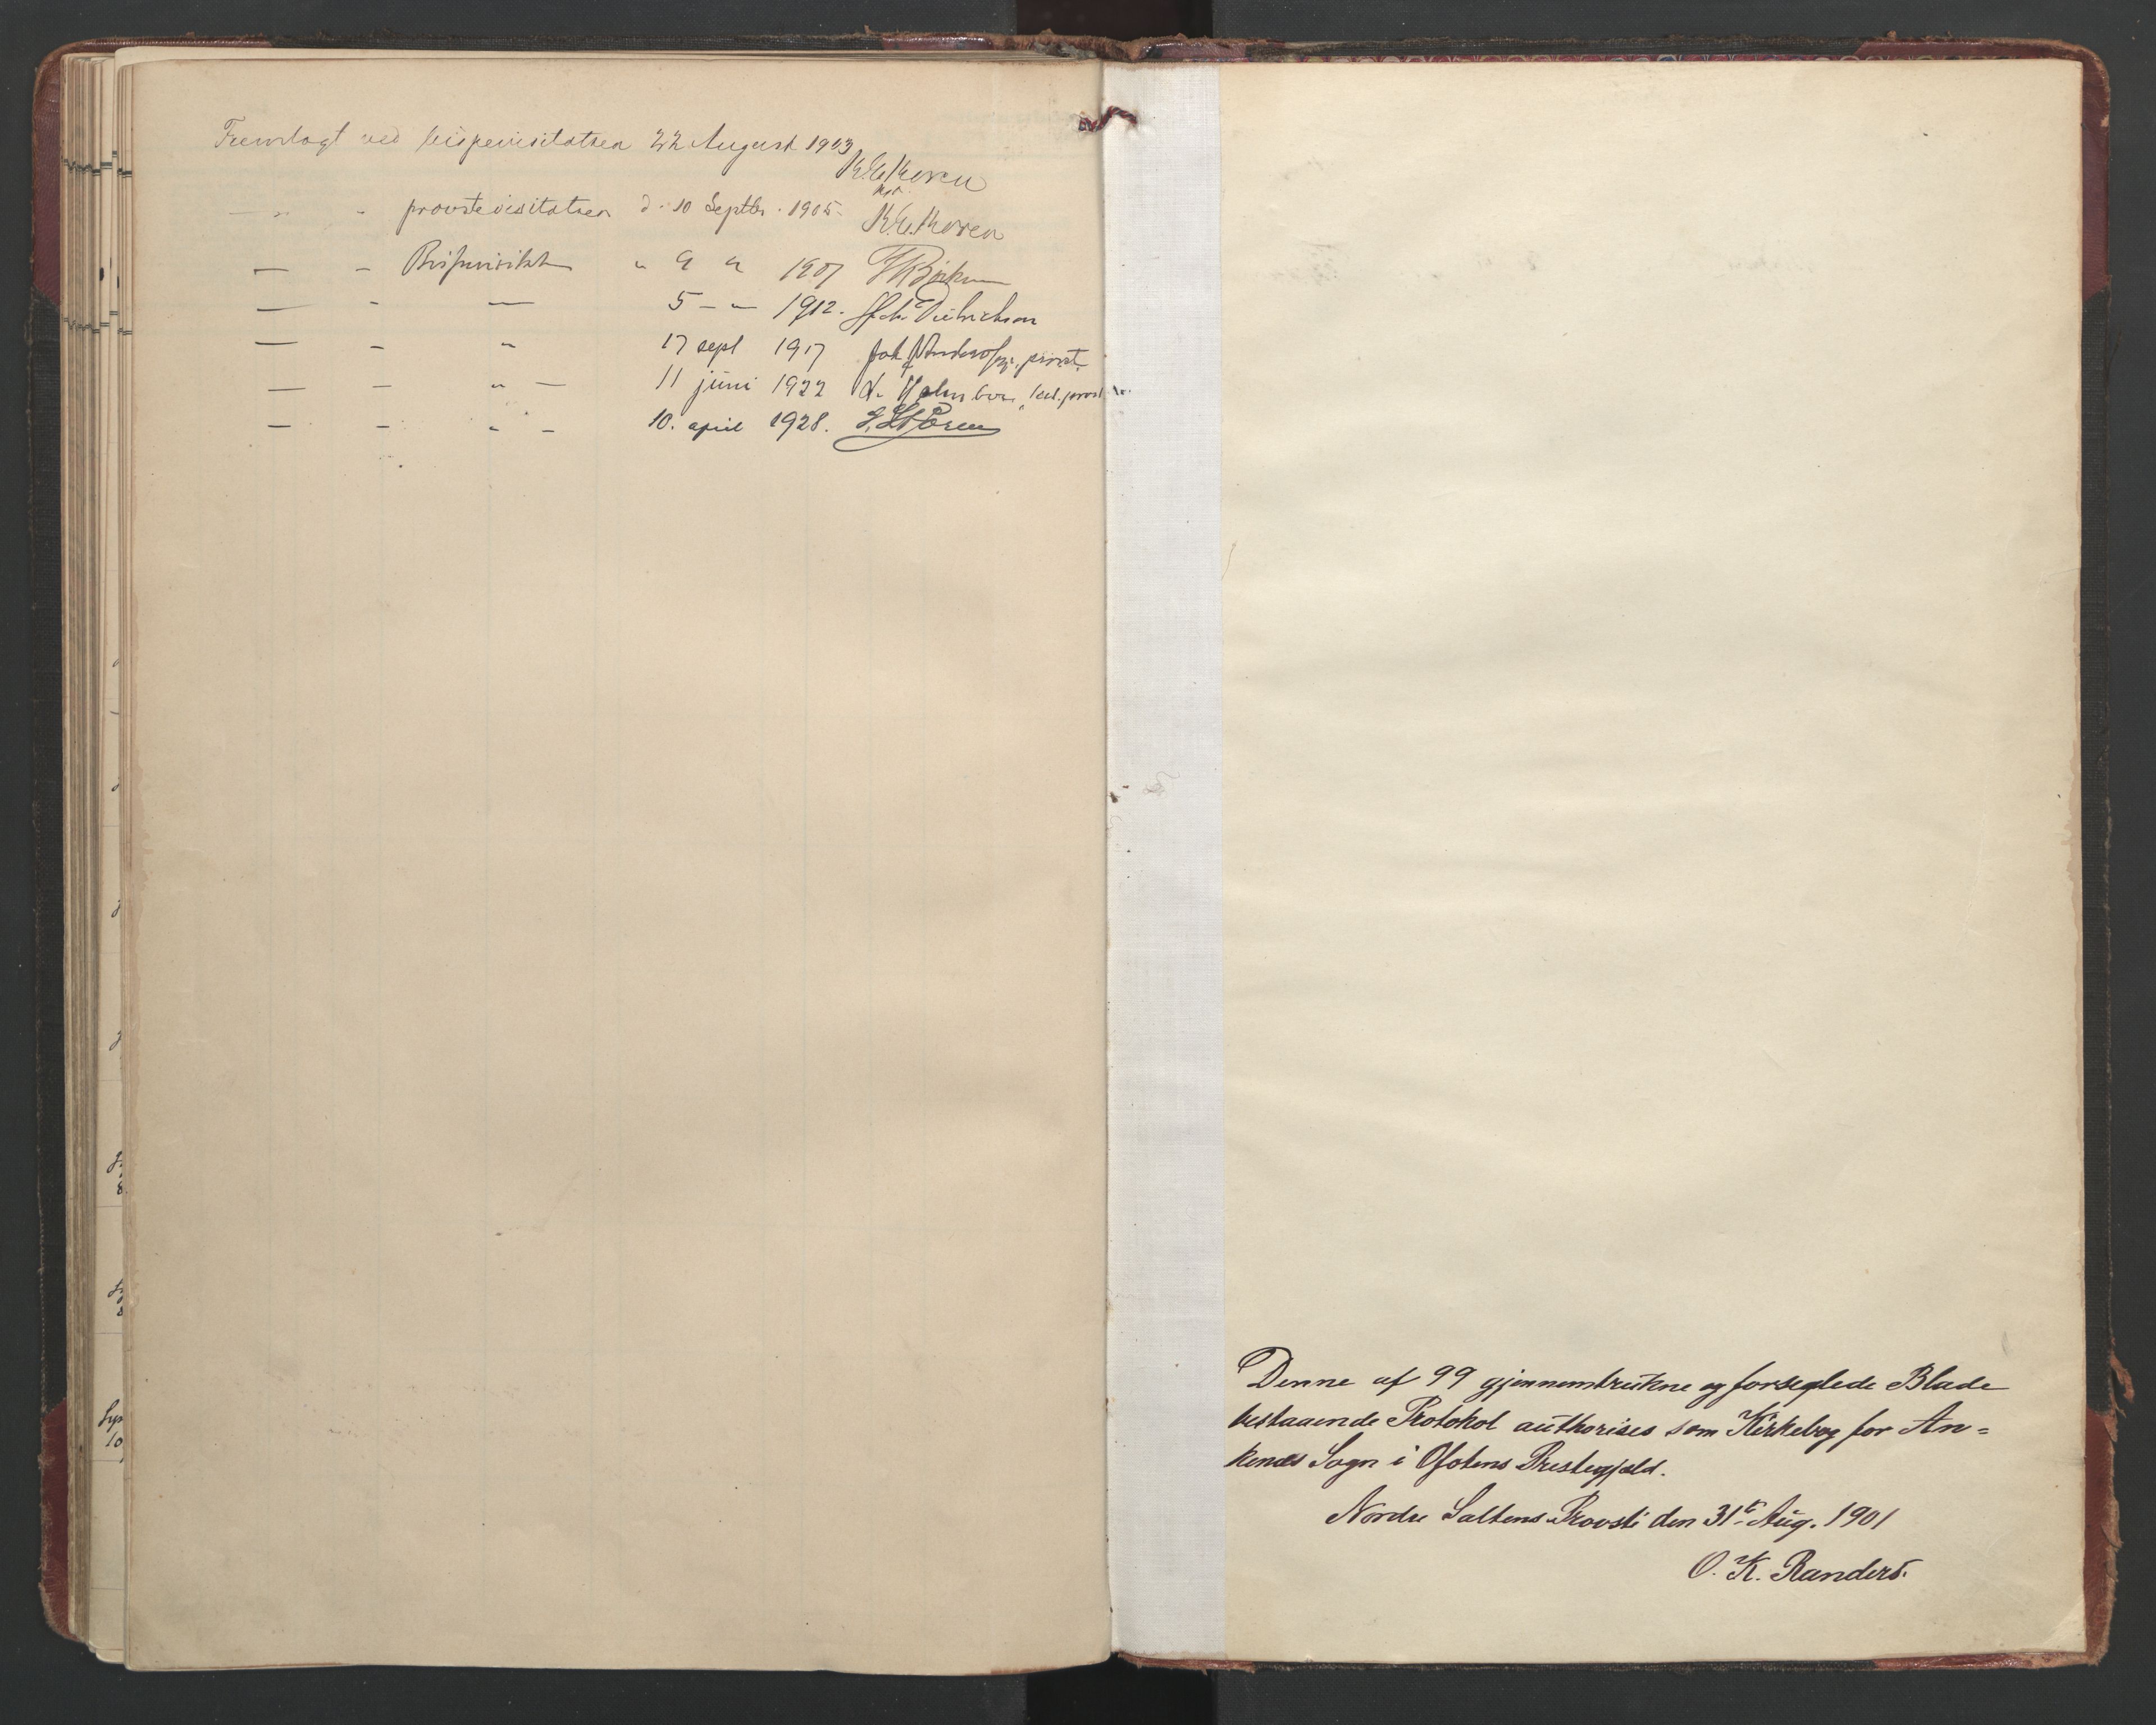 Fremlagt ved bispevisitatsen 22 August 1903
K. Koren
— " - provstevisitatsen d. 10 Septbr. 1905
K. Koren
— - Bispevisitats " 9 " 1907
— - — 5 - " 1912. Dietrichson
— - " 17 sept 1917 provst.
— - " — 11 juni 1922 Holmboe,
— - " - 10. april 1928. Støren
Denne af 99 gjennemtrukne og forseglede Blade
bestaaende Protokol authorises som Kirkebog for An=
kenæs Sogn i Ofotens Prestegjæld.
Nordre Saltens Provsti den 31te Aug. 1901
O. K. Randers.